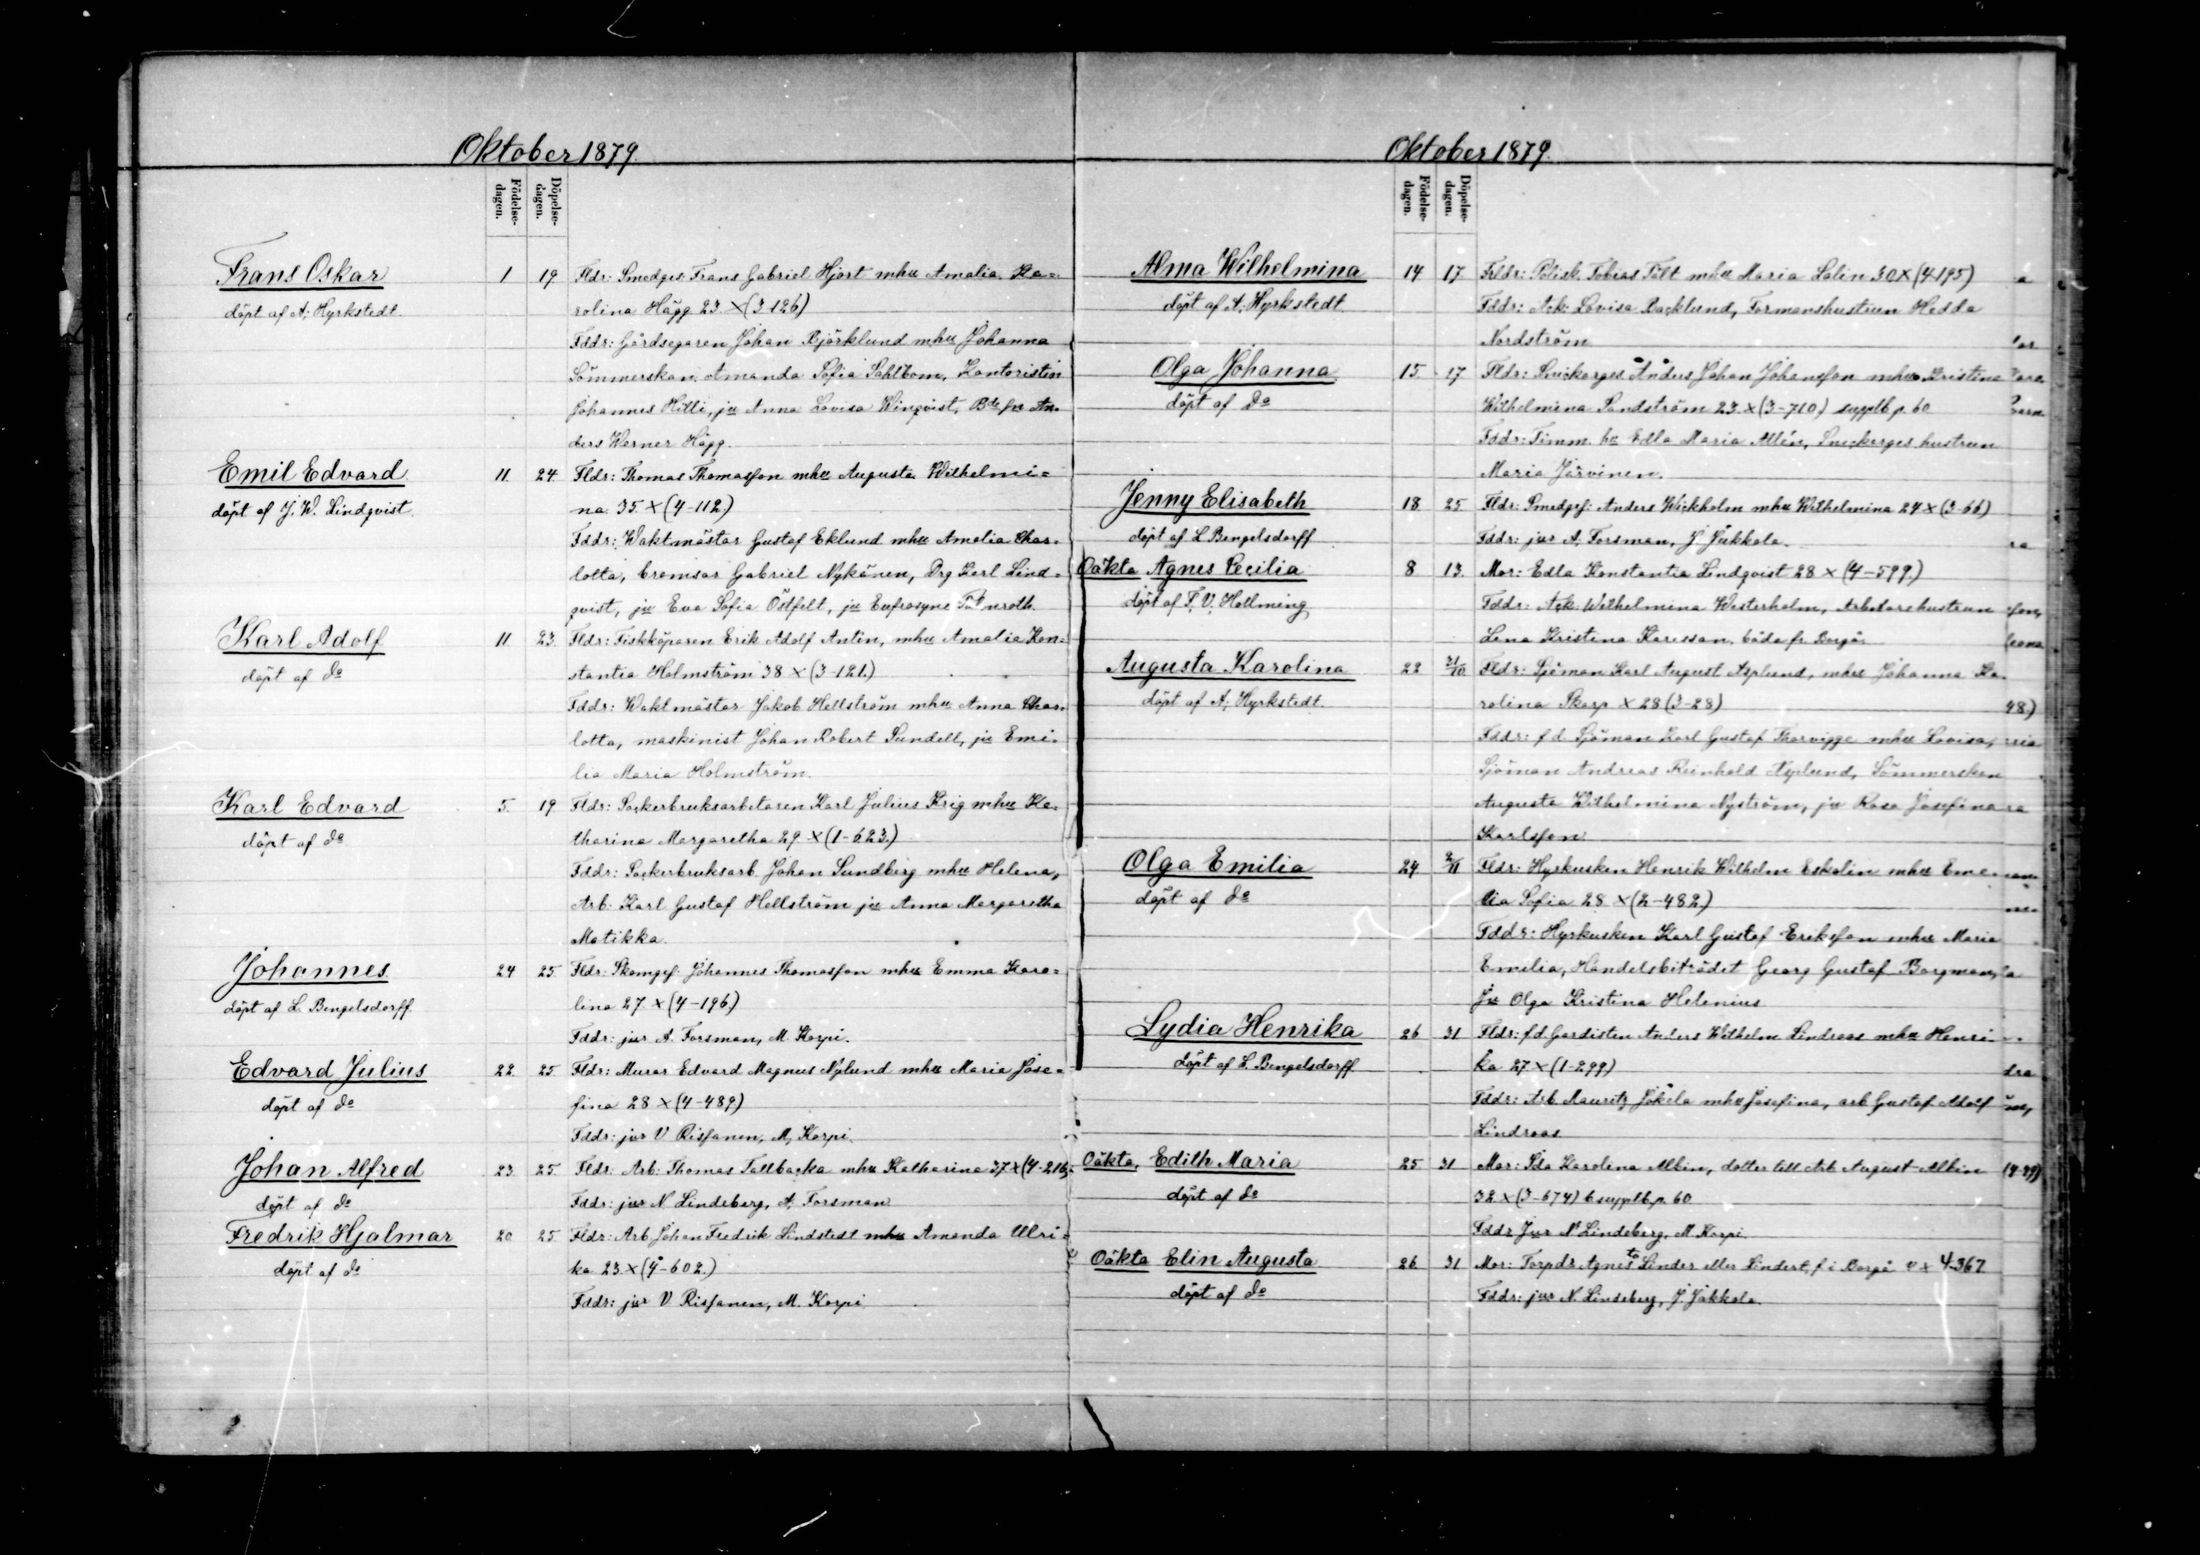 Oktober 1879.
Födelse-
dagen.
Döpelse-
dagen.
Frans Oskar 1 19 Fldr: Smedges. Frans Gabriel Hjort mhu Amalia Ka=
döpt af A. Hyrkstedt. rolina Hägg 23 × (3-126)
Fddr: Gårdsegaren Johan Björklund mhu Johanna
Sömmerskan Amanda Sofia Sahlbom, Kontoristen
Johannes Hilli, ju Anna Lovisa Winqvist, An-
ders Werner Hägg.
Emil Edvard 11 24 Fldr: Thomas Thomasson mhu Augusta Wilhelmi=
döpt af J. W. Lindqvist. na 35 × (4-112)
Fddr: Waktmästar Gustaf Eklund mhu Amalia Char-
lotta, bromsar Gabriel Nykänen, Drg Karl Lind-
qvist, ju Eva Sofia Östfelt, ju Eufrosyne
Karl Adolf 11 23 Fldr: Fiskköparen Erik Adolf Antin, mhu Amalia Kon=
döpt af do stantia Holmström 38 × (3-121.)
Fddr: Waktmästar Jakob Hellström mhu Anna Char-
lotta, maskinist Johan Robert Sundell, ju Emi-
lia Maria Holmström.
Karl Edvard 5 19 Fldr: Sockerbruksarbetaren Karl Julius Krig mhu Ka-
döpt af do tharina Margaretha 29 × (1-623.)
Fddr: Sockerbruksarb. Johan Sundberg mhu Helena,
Arb. Karl Gustaf Hellström ju Anna Margaretha
Matikka.
Johannes 24 25 Fldr: Skomgef. Johannes Thomasson mhu Emma Karo=
döpt af L. Bengelsdorff. lina 27 × (4-196)
Fddr: jur A. Forsman, M. Korpi.
Edvard Julius 22 25 Fldr: Murar Edvard Magnus Nylund mhu Maria Jose=
döpt af do fina 28 × (4-489)
Fddr: jur V Rissanen, M, Korpi.
Johan Alfred 23 25 Fldr: Arb: Thomas Tallbacka mhu Katharina 37 × (4-216)
döpt af do Fddr: jur N Lindeberg, A, Forsman
Fredrik Hjalmar 20 25 Fldr: Arb Johan Fredrik Lindstedt mhu Amanda Ulri-
döpt af do ka 23 × (4-602.)
Fddr: jur V Rissanen, M. Korpi
Oktober 1879.
Födelse-
dagen.
Döpelse-
dagen.
Alma Wilhelmina 14 17 Fldr: Polisk. Tobias Tält mhu Maria Salin 30 × (4-195)
döpt af A. Hyrkstedt. Fddr: Ack. Lovisa Backlund, Formanshustrun Hedda
Nordström
Olga Johanna 15 17 Fldr: Snickarges Anders Johan Johansson mhu Kristina
döpt af do Wilhelmina Sandström 23 × (3-710) supplb. p. 60
Fddr: Timm. hu Edla Maria Allén, Snickarges hustrun
Maria Järvinen.
Jenny Elisabeth 18 25 Fldr: Smedgef: Anders Wickholm mhu Wilhelmina 24 × (3-66)
döpt af L Bengelsdorff Fddr: jur A, Forsman, J Jakkola.
Oäkta Agnes Cecilia 8 13 Mor: Edla Konstantia Lindqvist 28 × (4-599.)
döpt af F. V. Hollming Fddr: Ack. Wilhelmina Westerholm, Arbetarehustrun
Lena Kristina Karlsson, båda fr. Borgå.
Augusta Karolina 22 31/10 Fldr: Sjöman Karl August Asplund, mhu Johanna Ka-
döpt af A. Hyrkstedt rolina Skarp × 28 (3-28)
Fddr: f d Sjöman Karl Gustaf Thorvigge mhu Lovisa,
Sjöman Andreas Reinhold Asplund, Sömmerskan
Augusta Wilhelmina Nyström, ju Rosa Josefina
Karlsson.
Olga Emilia 24 2/11 Fldr: Hyrkusken Henrik Wilhelm Eskolin mhu Eme
döpt af do lia Sofia 28 × (2-482.)
Fddr: Hyrkusken Karl Gustaf Eriksson mhu Maria
Emilia, Handelsbiträdet Georg Gustaf Borgman,
Ju Olga Kristina Helenius
Lydia Henrika 26 31 Fldr: f d Gardisten Anders Wilhelm Lindroos mhu Henri-
döpt af L. Bengelsdorff ka 27 × (1-299)
Fddr: Arb Mauritz Jokela mhu Josefina, arb Gustaf Adolf
Lindroos
Oäkta, Edith Maria 25 31 Mor: Ida Karolina Albin, dotter till Arb August Albin
döpt af do 32 × (3-674) supplb. p. 60
Fddr Jur N Lindeberg, M Korpi.
Oäkta Elin Augusta 26 31 Mor: Torpdr Agnes Linder eller Lindert, f i Borgå × 4-367
döpt af do Fddr: jur N. Lindeberg, J. Jakkola.